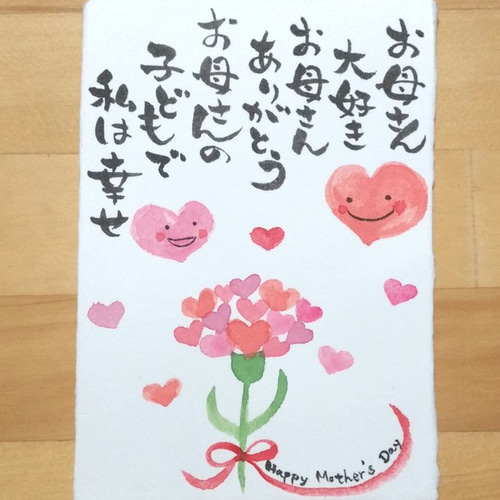 お母さん
大好き
お母さん
ありがとう
お母さんの
子どもで
私は幸せ
Happy Mother's Day